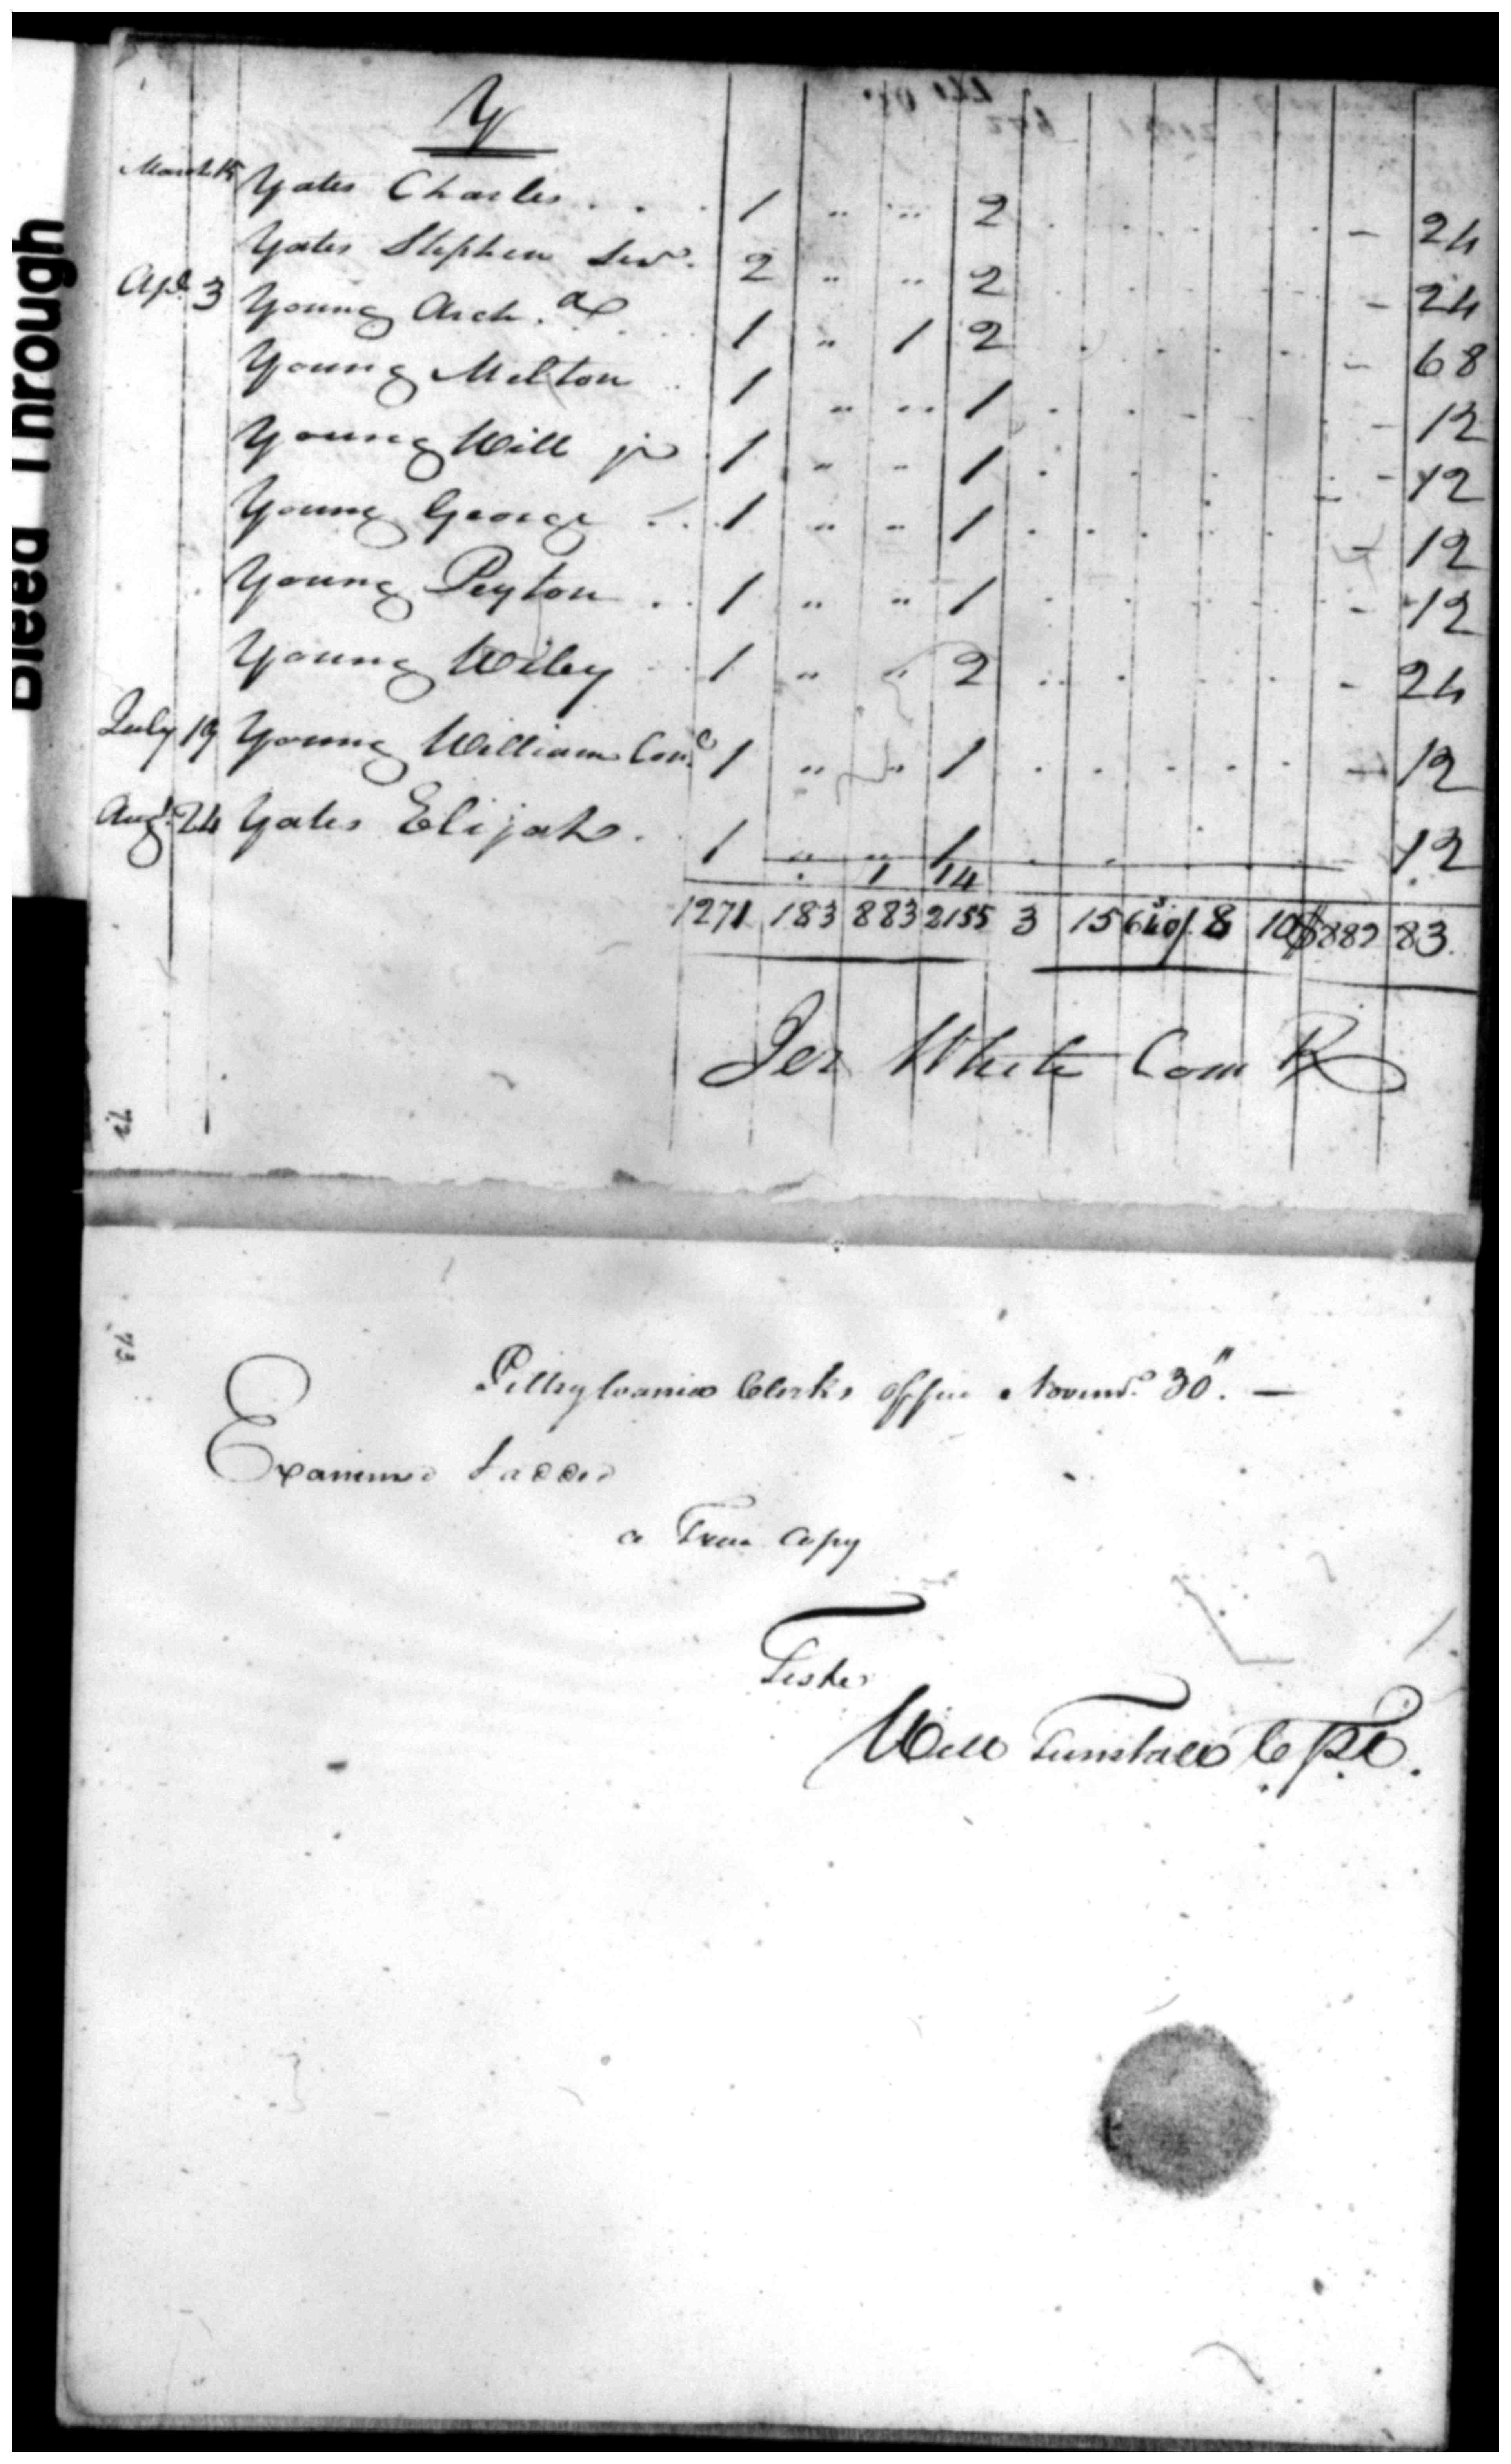 Y
March 15 Yates Charles . . . 1 " " 2 - 24
Yates Stephen Senr. 2 " " 2 - 24
Apl. 3 Young Arch. a 1 " 1 2 - 68
Young Milton 1 " " 1 - 12
Young Will jr 1 " " 1 - 12
Young George 1 " " 1 - 12
Young Peyton 1 " " 1 - 12
Young Wiley 1 " " 2 - 24
July 19 Young William Conc. 1 " " 1 - 12
Augt. 24 Yates Elijah 1 " " 1 12
1 14
1271 183 883 2155 3 15 8 10 $882 83
Jer White Com R
72
73
Pittsylvania Clerks office Novemr. 30". —
Examined
a True Copy
Teste
Will Tunstall C P C.
Bleed Through